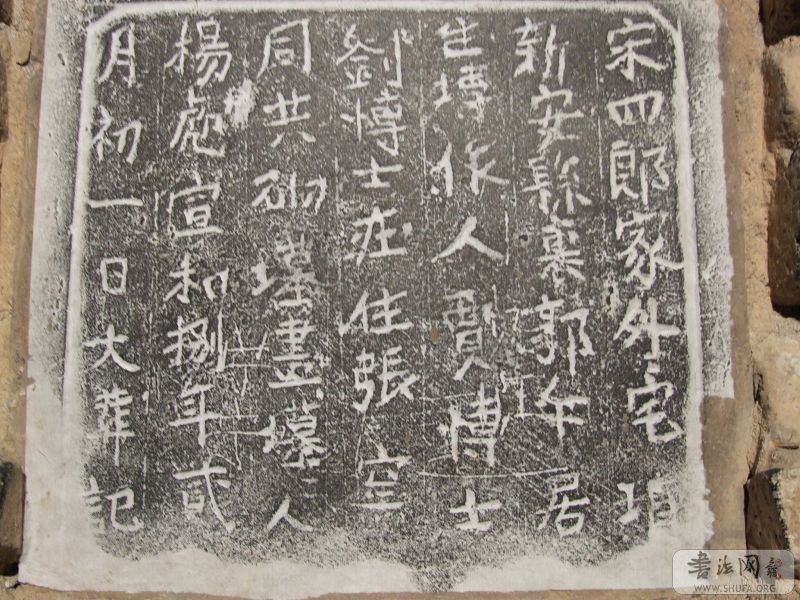 宋四郎家外宅坟
新安縣裏郭午居
住塼作人賈博士
劉博士庄住張窑
同共砌墓畫墓人
楊彪宣和捌年貳
月初一日大葬記
書法网
WWW.SHUFA.ORG